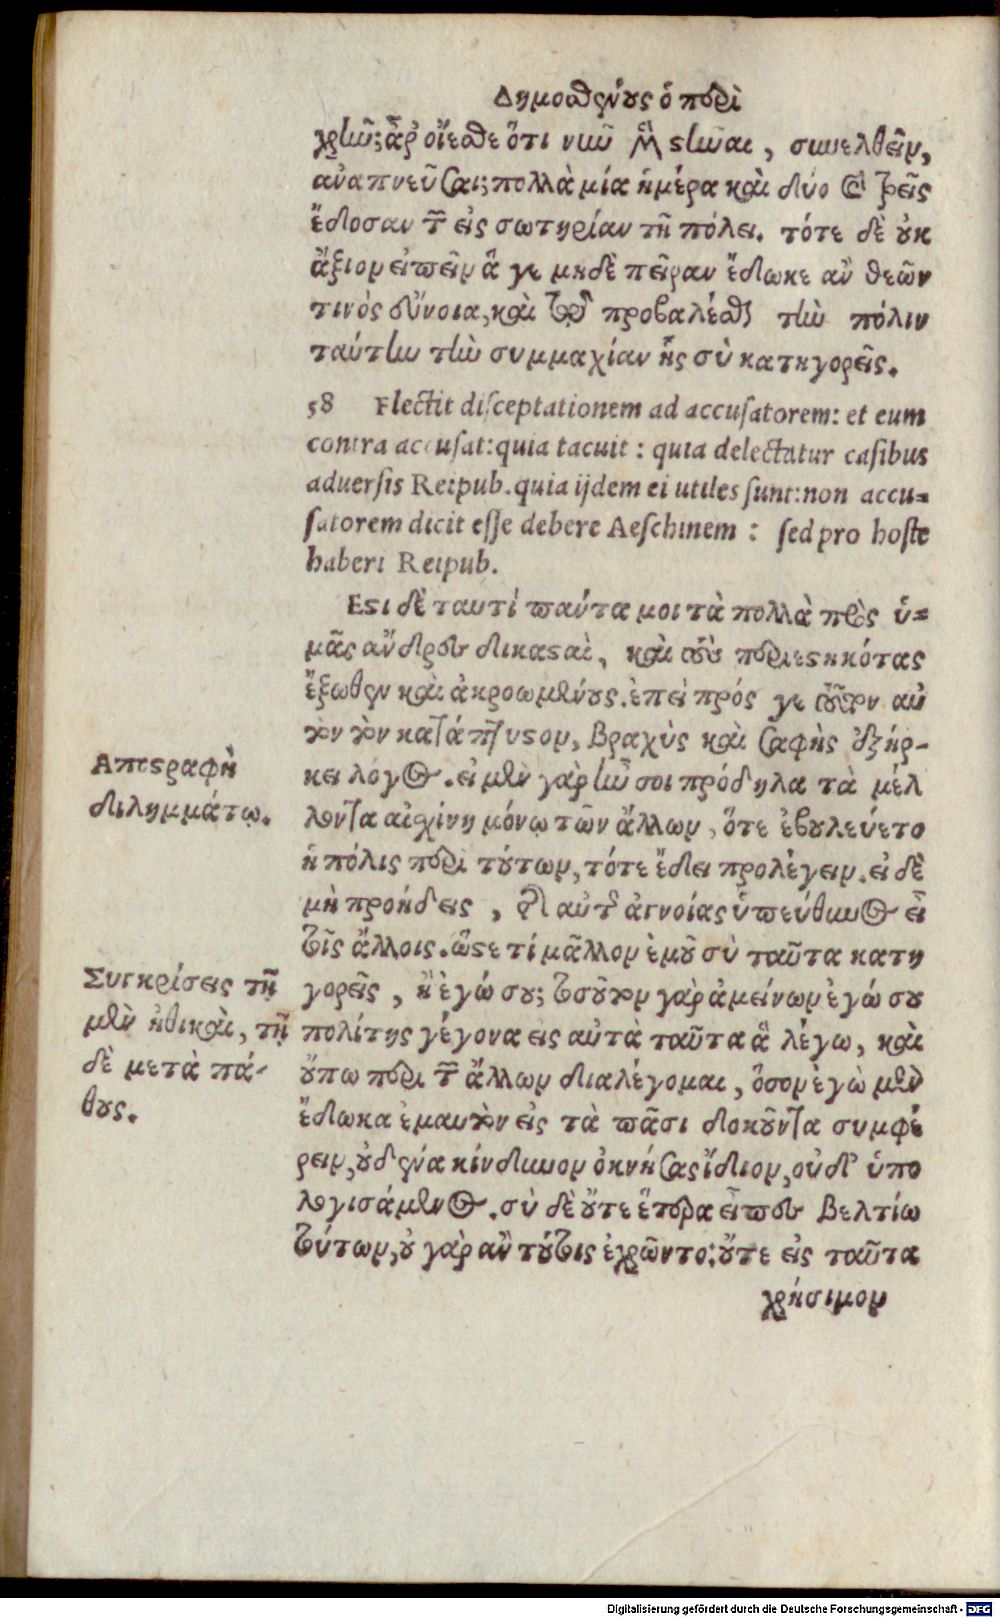 Δημοσθένους ὁ περὶ
χρῆν; ἆρ οἴεσθε ὅτι νῦν μὲν στῆναι, συνελθεῖν,
ἀναπνεῦσαι; πολλὰ μία ἡμέρα καὶ δύο καὶ τρεῖς
ἔδοσαν τῶν εἰς σωτηρίαν τῇ πόλει. τότε δὲ οὐκ
ἄξιον εἰπεῖν ἅ γε μηδὲ πεῖραν ἔδωκε αὖ θεῶν
τινὸς εὔνοια, καὶ τὸ προβαλέσθαι τὴν πόλιν
ταύτην τὴν συμμαχίαν ἧς σὺ κατηγορεῖς.
58 Flectit disceptationem ad accusatorem: et eum
contra accusat: quia tacuit : quia delectatur casibus
aduersis Reipub. quia ijdem ei utiles sunt: non accu=
satorem dicit esse debere Aeschinem : sed pro hoste
haberi Reipub.
Εστι δὲ ταυτὶ πάντα μοι τὰ πολλὰ πρὸς ὑ=
μᾶς ἄνδρες δικασταὶ, καὶ τοὺς περιεστηκότας
ἔξωθεν καὶ ἀκροωμένους. ἐπεὶ πρός γε τοῦτον αὐ
τὸν τὸν κατάπτυστον, βραχὺς καὶ σαφὴς ἐξήρ-
κει λόγος. εἰ μὲν γὰρ ἦν σοι πρόδηλα τὰ μέλ
λοντα αἰσχίνη μόνῳ τῶν ἄλλων, ὅτε ἐβουλεύετο
ἡ πόλις περὶ τούτων, τότε ἔδει προλέγειν. εἰ δὲ
μὴ προήδεις, τῆς αὐτῆς ἀγνοίας ὑπεύθυνος εἶ
τοῖς ἄλλοις. ὥστε τί μᾶλλον ἐμοῦ σὺ ταῦτα κατη
γορεῖς, ἢ ἐγώ σου; τοσοῦτον γὰρ ἀμείνων ἐγώ σου
πολίτης γέγονα εἰς αὐτὰ ταῦτα ἃ λέγω, καὶ
οὔπω περὶ τῶν ἄλλων διαλέγομαι, ὅσον ἐγὼ μὲν
ἔδωκα ἐμαυτὸν εἰς τὰ πᾶσι δοκοῦντα συμφέ
ρειν, οὐδένα κίνδυνον ὀκνήσας ἴδιον, οὐδ' ὑπο
λογισάμενος. σὺ δὲ οὔτε ἕτερα εἶπες βελτίω
τούτων, οὐ γὰρ ἂν τούτοις ἐχρῶντο; οὔτε εἰς ταῦτα
χρήσιμον
Απεστραφὴ
διλημμάτῳ.
Συγκρίσεις τῇ
μὲν ἠθικαὶ, τῇ
δὲ μετὰ πά-
θους.
Digitalisierung gefördert durch die Deutsche Forschungsgemeinschaft - DFG